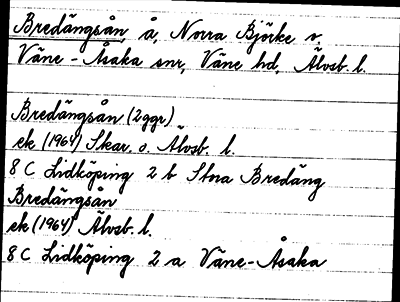 Bredängsån å, Norra Björke s.
Väne-Åsaka snr, Väne hd, Älvsb. l.
Bredängsån (2ggr)
ek (1964) Skar. o. Älvsb. l.
8 C Lidköping 2 b Stora Bredäng
Bredängsån
ek (1964) Älvsb. l.
8 C Lidköping 2 a Väne-Åsaka